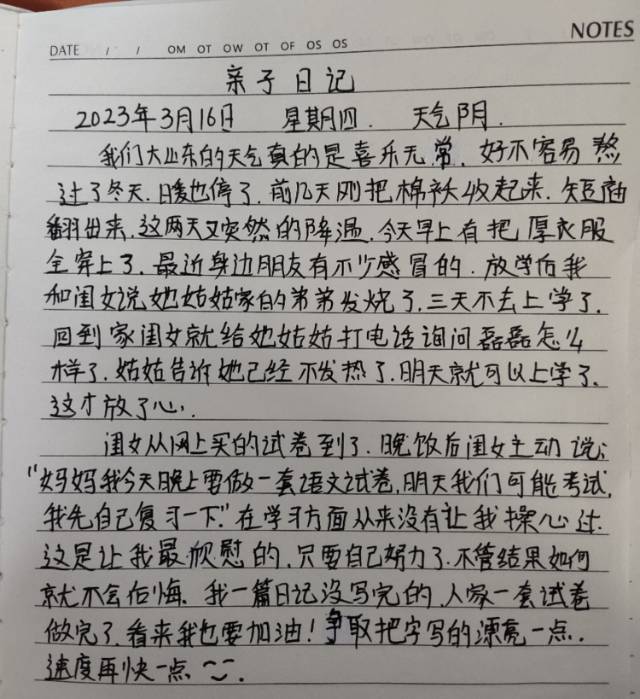 NOTES
DATE / / OM OT OW OT OF OS OS
亲子日记
2023年3月16日 星期四. 天气阴.
我们大山东的天气真的是喜乐无常,好不容易熬
过了冬天.日暖也停了.前几天刚把棉袄收起来.短袖
翻出来,这两天又突然的降温,今天早上有把厚衣服
全穿上了.最近身边朋友有不少感冒的.放学后我
和闺女说她姑姑家的弟弟发烧了.三天不去上学了.
回到家闺女就给她姑姑打电话询问磊磊怎么
样了.姑姑告诉她已经不发热了.明天就可以上学了.
这才放了心.
闺女从网上买的试卷到了.晚饭后闺女主动说:
“妈妈我今天晚上要做一套语文试卷,明天我们可能考试,
我先自己复习一下”.在学习方面从来没有让我操心过.
这是让我最欣慰的.只要自己努力了.不管结果如何
就不会后悔.我一篇日记没写完的,人家一套试卷
做完了.看来我也要加油!争取把字写的漂亮一点.
速度再快一点